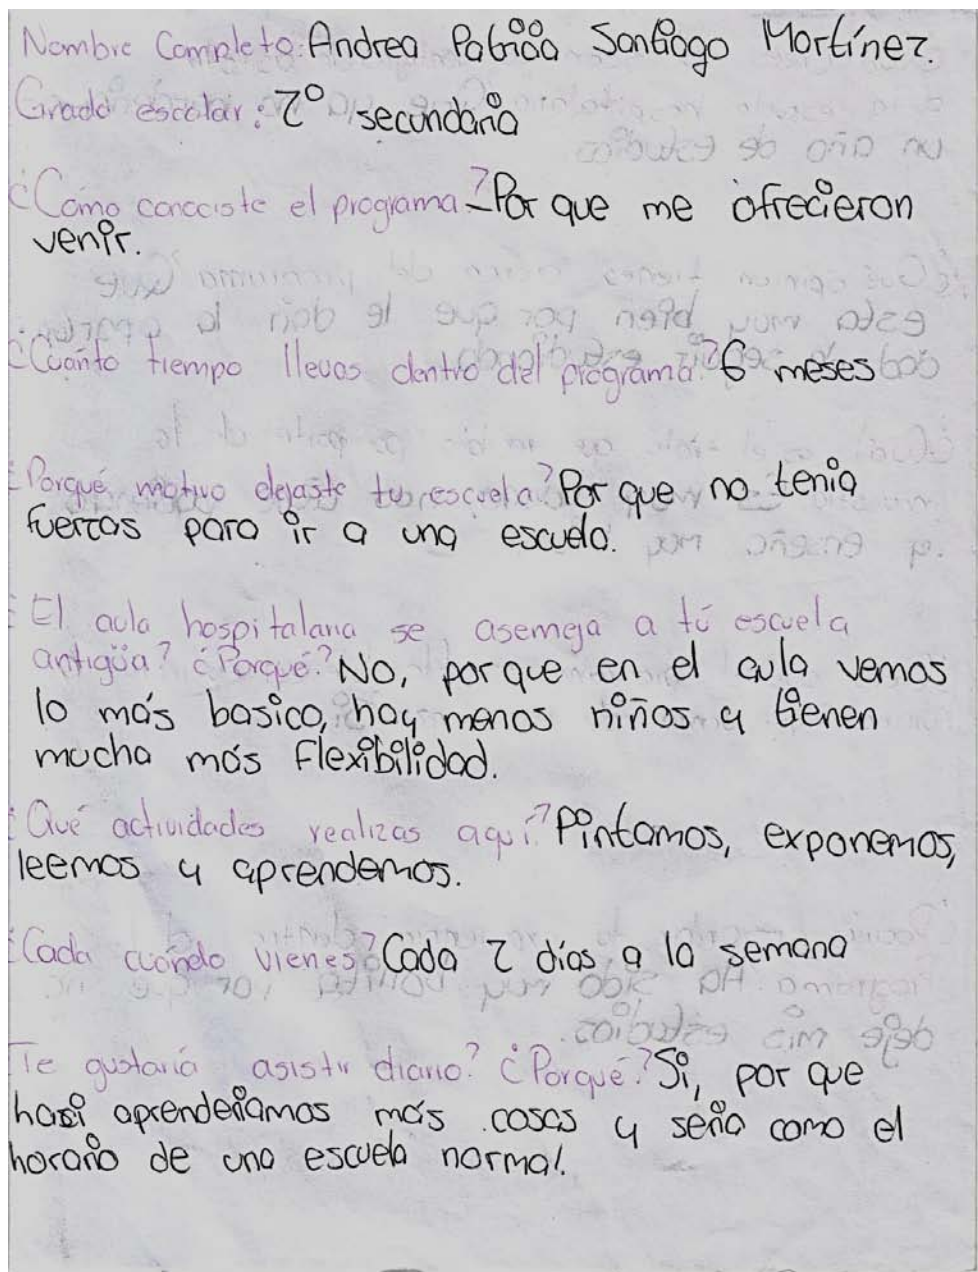 Nombre Completo: Andrea Patricia Santiago Martínez.
Grado escolar: 2° secundaria
¿Cómo conociste el programa? Por que me ofrecieron
venir.
¿Cuánto tiempo llevas dentro del programa? 6 meses
¿Porqué motivo dejaste tu escuela? Por que no tenia
fuerzas para ir a una escuela.
El aula hospitalaria se asemeja a tú escuela
antigüa? ¿Porqué? No, por que en el aula vemos
lo más basico, hay menos niños y tienen
mucha más flexibilidad.
¿Qué actividades realizas aquí? Pintamos, exponemos,
leemos y aprendemos.
¿Cada cuándo vienes? Cada 2 días a la semana
Te gustaría asistir diario? ¿Porqué? Si, por que
hasi aprenderiamos más cosas y sería como el
horario de una escuela normal.